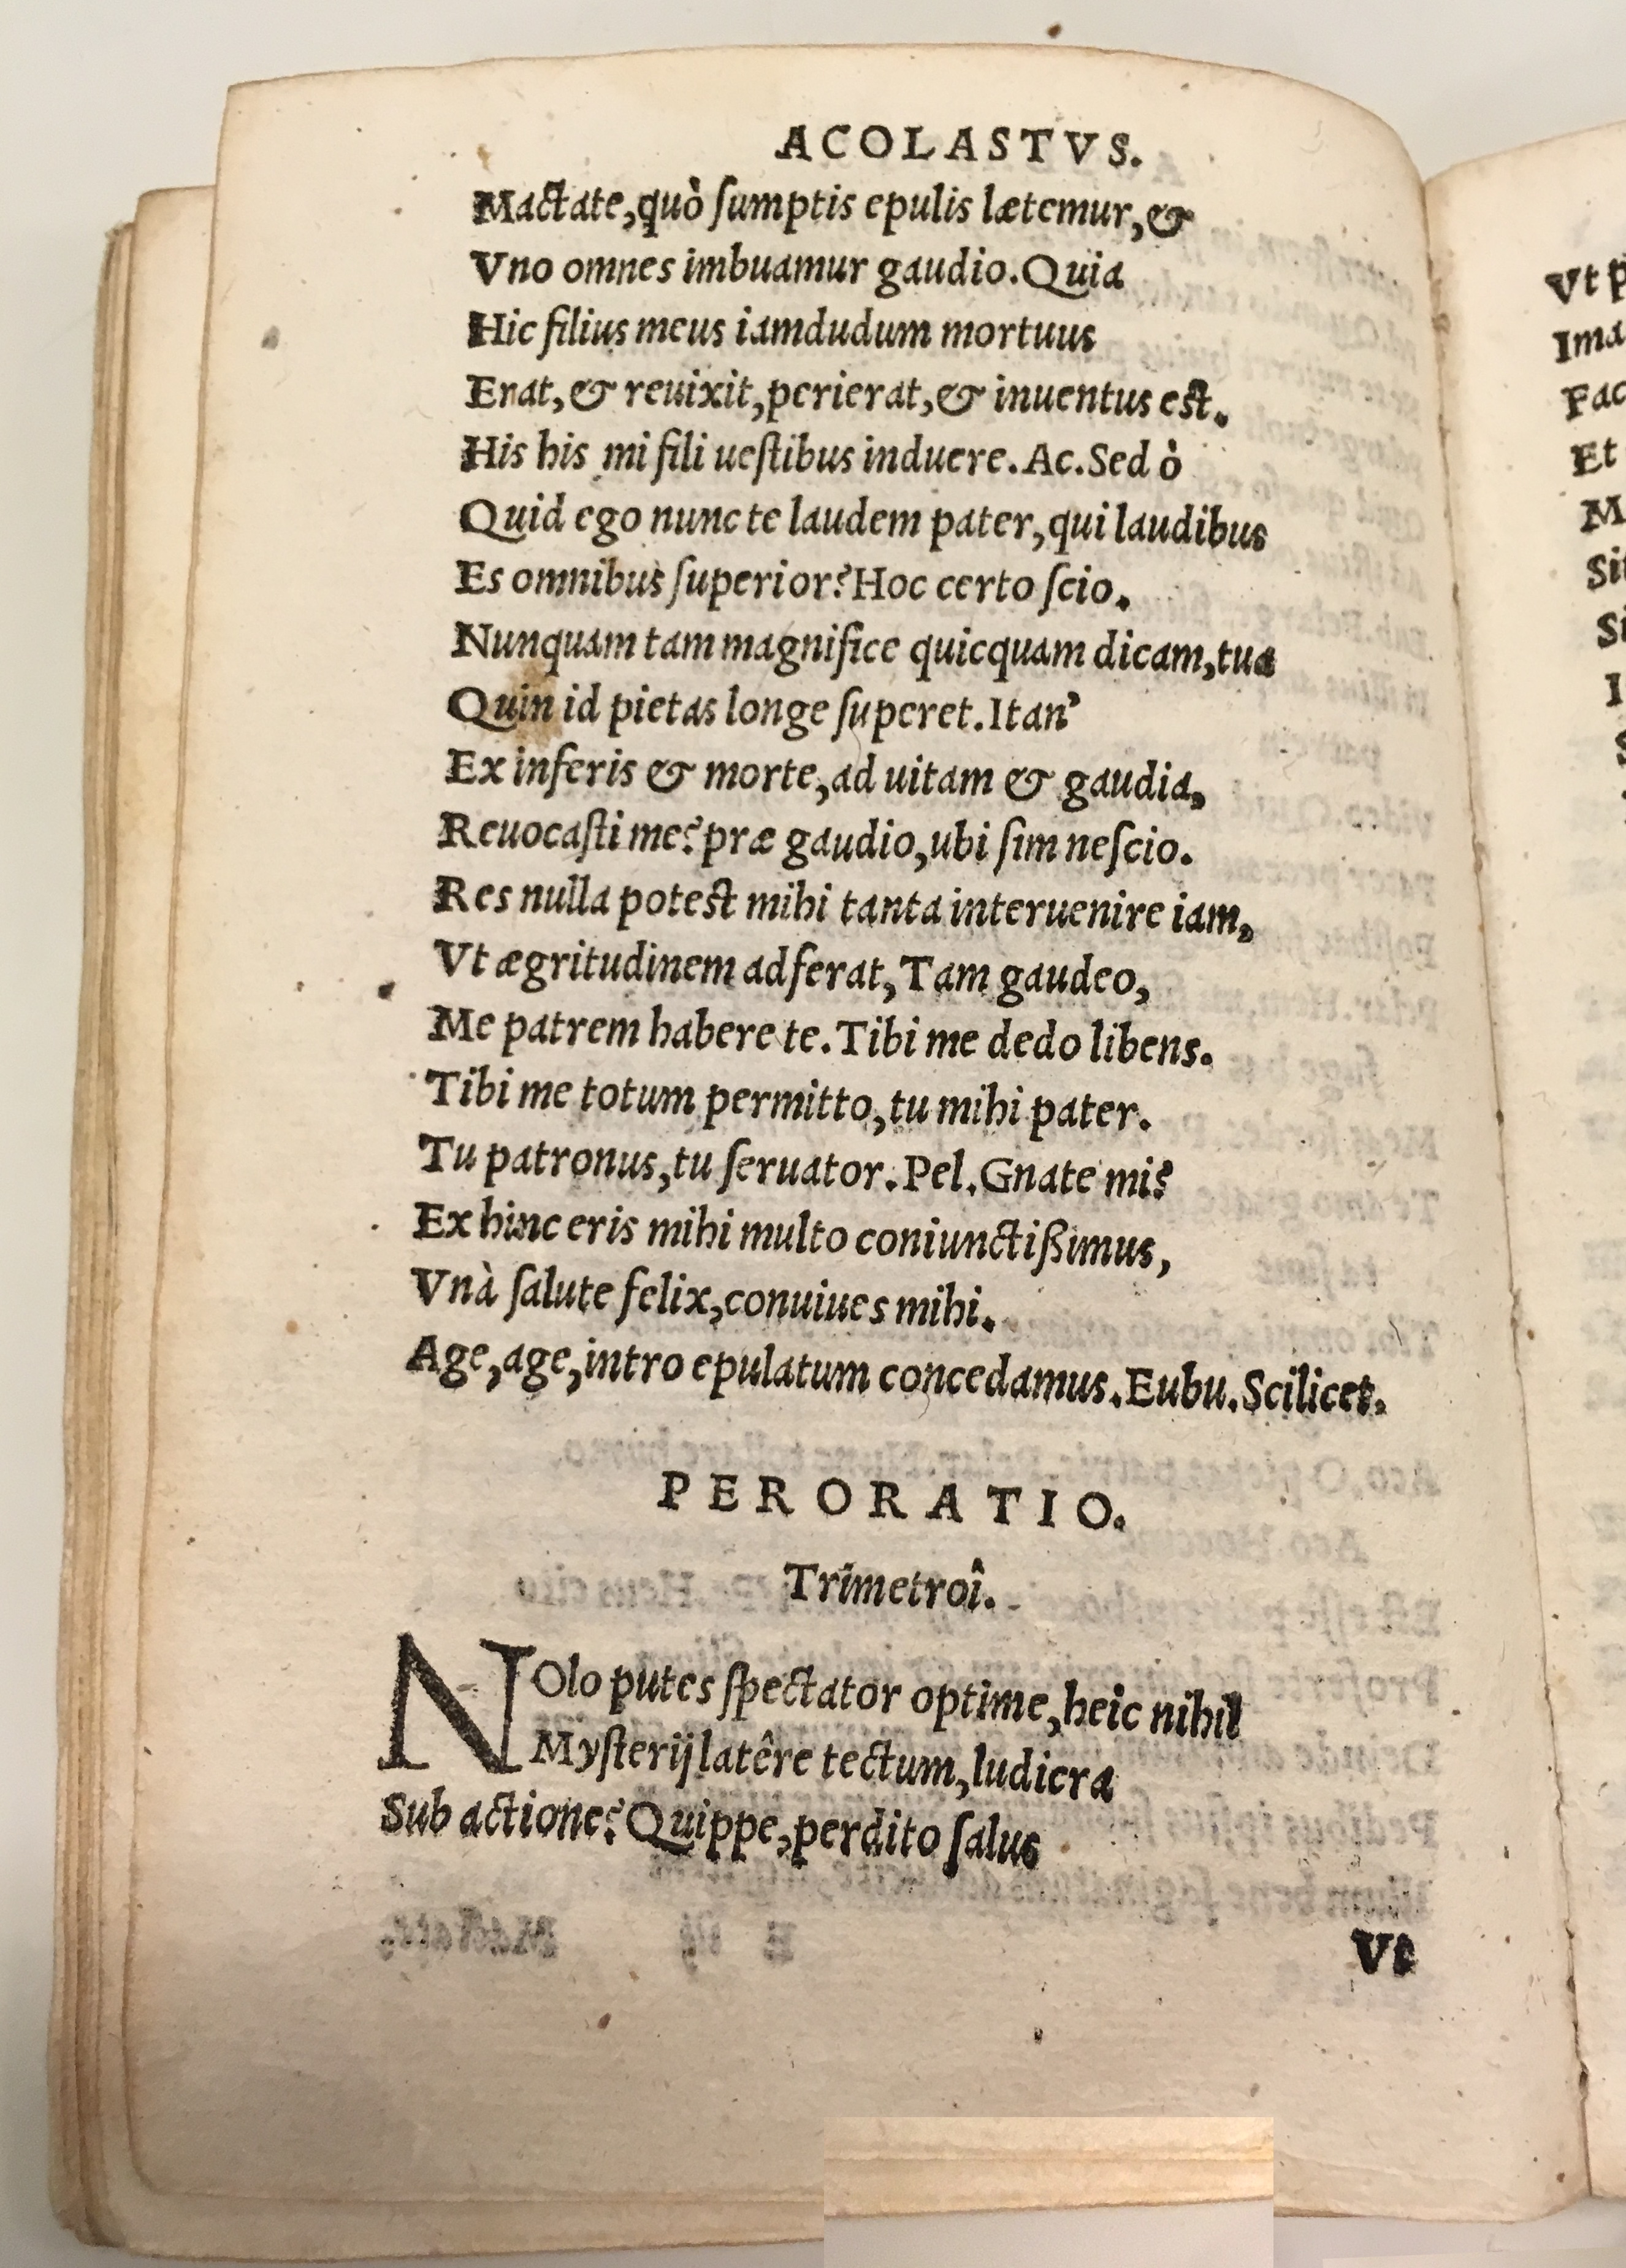 ACOLASTVS.
Mactate,quò ſumptis epulis lætemur,&
Vno omnes imbuamur gaudio.Quia
Hic filius meus iamdudum mortuus
Erat,& reuixit,perierat,& inuentus est.
His his mi fili ueſtibus induere.Ac.Sed ò
Quid ego nunc te laudem pater,qui laudibus
Es omnibus ſuperior?Hoc certo ſcio.
Nunquam tam magnifice quicquam dicam,tua
Quin id pietas longe ſuperet.Itan'
Ex inferis & morte,ad uitam & gaudia,
Reuocaſti me?præ gaudio,ubi ſim neſcio.
Res nulla potest mihi tanta interuenire iam,
Vt ægritudinem adferat,Tam gaudeo,
Me patrem habere te.Tibi me dedo libens.
Tibi me totum permitto,tu mihi pater.
Tu patronus,tu ſeruator.Pel.Gnate mi?
Ex hinc eris mihi multo coniunctißimus,
Vnà ſalute felix,conuiues mihi.
Age,age,intro epulatum concedamus.Eubu.Scilicet.
PERORATIO.
Trimetroî.
NOlo putes ſpectator optime,heic nihil
Myſterij latêre tectum,ludicra
Sub actione?Quippe,perdito ſalus
Vt
Vt
Ima
Fac
Et
M
Sit
Si
I
S